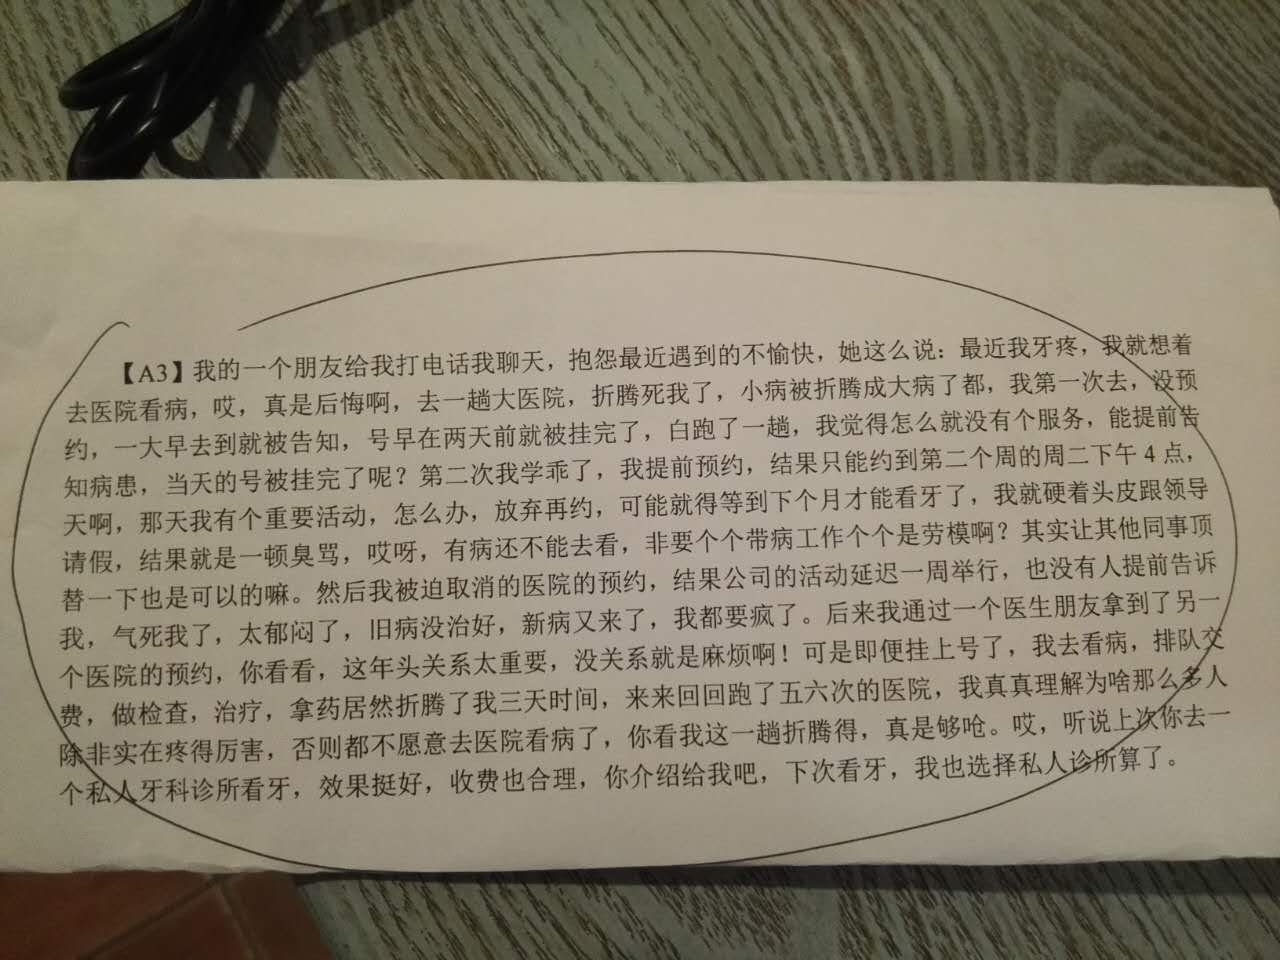 【A3】我的一个朋友给我打电话我聊天，抱怨最近遇到的不愉快，她这么说：最近我牙疼，我就想着
去医院看病，哎，真是后悔啊，去一趟大医院，折腾死我了，小病被折腾成大病了都，我第一次去，没预
约，一大早去到就被告知，号早在两天前就被挂完了，白跑了一趟，我觉得怎么就没有个服务，能提前告
知病患，当天的号被挂完了呢？第二次我学乖了，我提前预约，结果只能约到第二个周的周二下午 4 点，
天啊，那天我有个重要活动，怎么办，放弃再约，可能就得等到下个月才能看牙了，我就硬着头皮跟领导
请假，结果就是一顿臭骂，哎呀，有病还不能去看，非要个个带病工作个个是劳模啊？其实让其他同事顶
替一下也是可以的嘛。然后我被迫取消的医院的预约，结果公司的活动延迟一周举行，也没有人提前告诉
我，气死我了，太郁闷了，旧病没治好，新病又来了，我都要疯了。后来我通过一个医生朋友拿到了另一
个医院的预约，你看看，这年头关系太重要，没关系就是麻烦啊！可是即便挂上号了，我去看病，排队交
费，做检查，治疗，拿药居然折腾了我三天时间，来来回回跑了五六次的医院，我真真理解为啥那么多人
除非实在疼得厉害，否则都不愿意去医院看病了，你看我这一趟折腾得，真是够呛。哎，听说上次你去一
个私人牙科诊所看牙，效果挺好，收费也合理，你介绍给我吧，下次看牙，我也选择私人诊所算了。